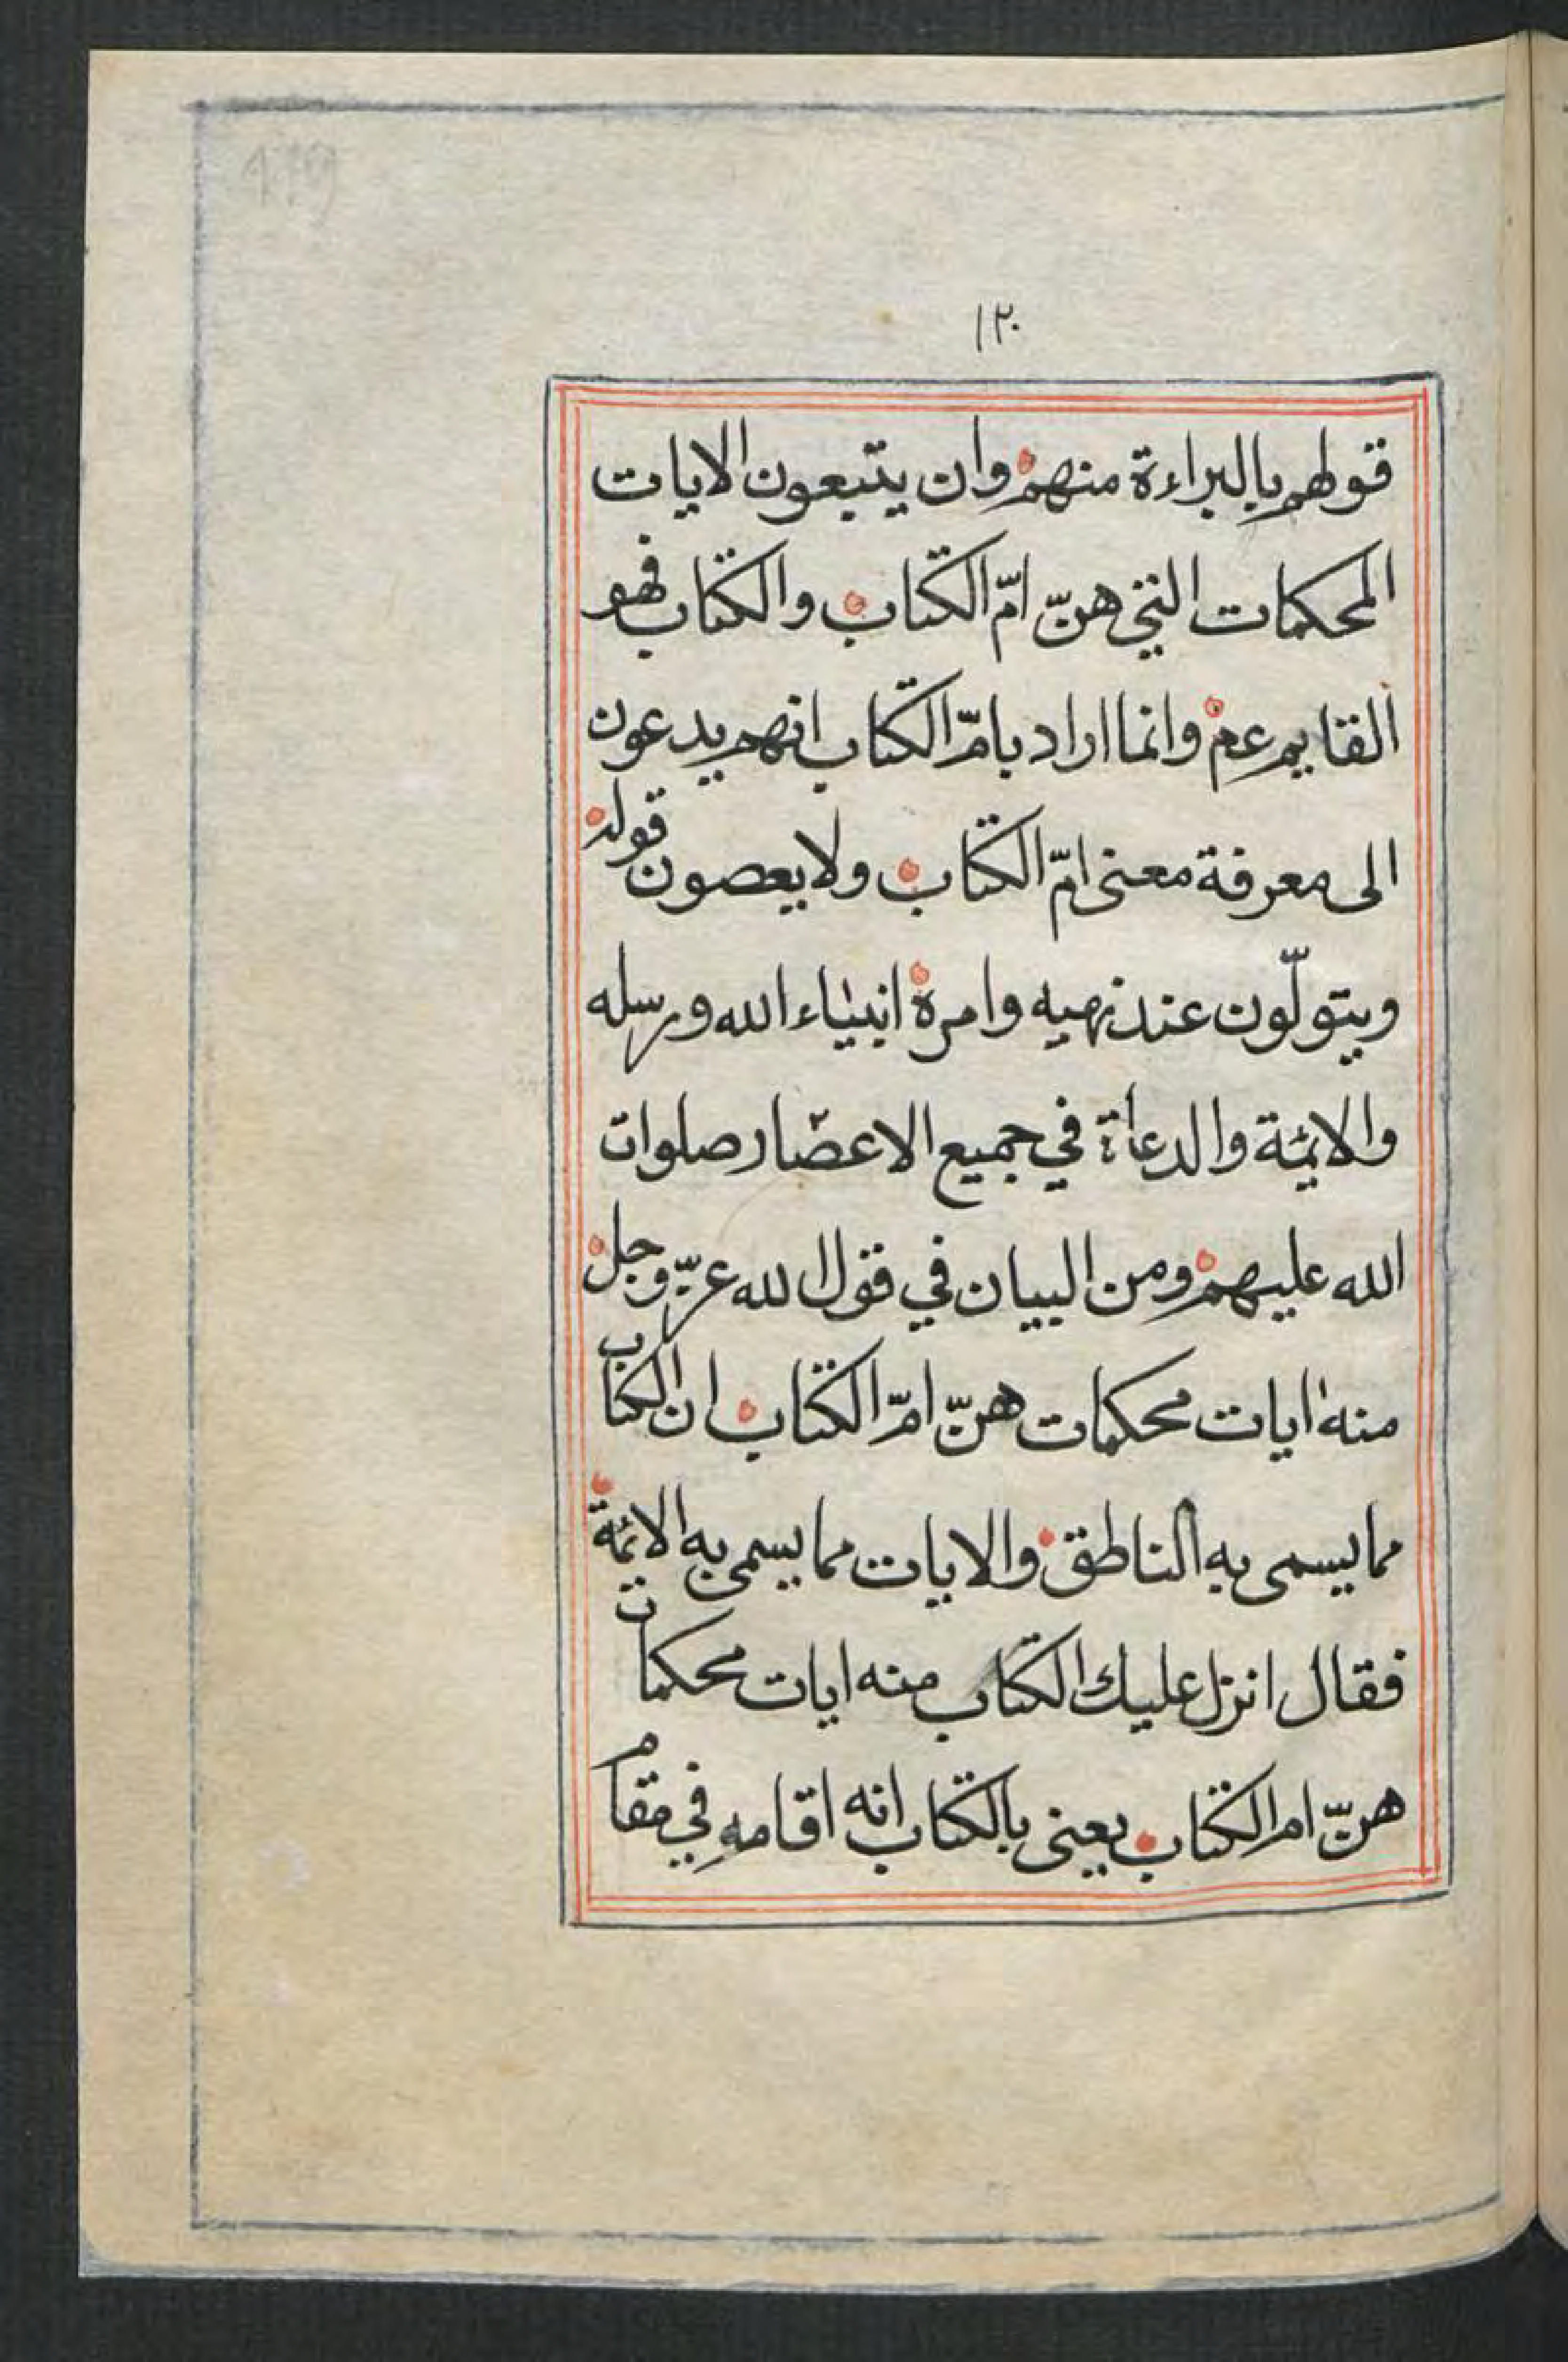 ١٢٠
قولهم بالبراءة منهم وان يتبعون الايات
المحكمات التي هنّ امّ الكتاب والكتاب فهو
القايم عم وانما اراد بامّ الكتاب انهم يدعون
الى معرفة معنى امّ الكتاب ولا يعصون قوله
ويتولّون عند نهيه وامره انبياء الله ورسله
والايمّة والدعاة في جميع الاعصار صلوات
الله عليهم ومن البيان في قول الله عزّ وجل
منه ايات محكمات هنّ امّ الكتاب ان الكتاب
مما يسمى به الناطق والايات مما يسمى به الائمة
فقال انزل عليك الكتاب منه ايات محكمات
هنّ ام الكتاب يعنى بالكتاب انه اقامه في مقام